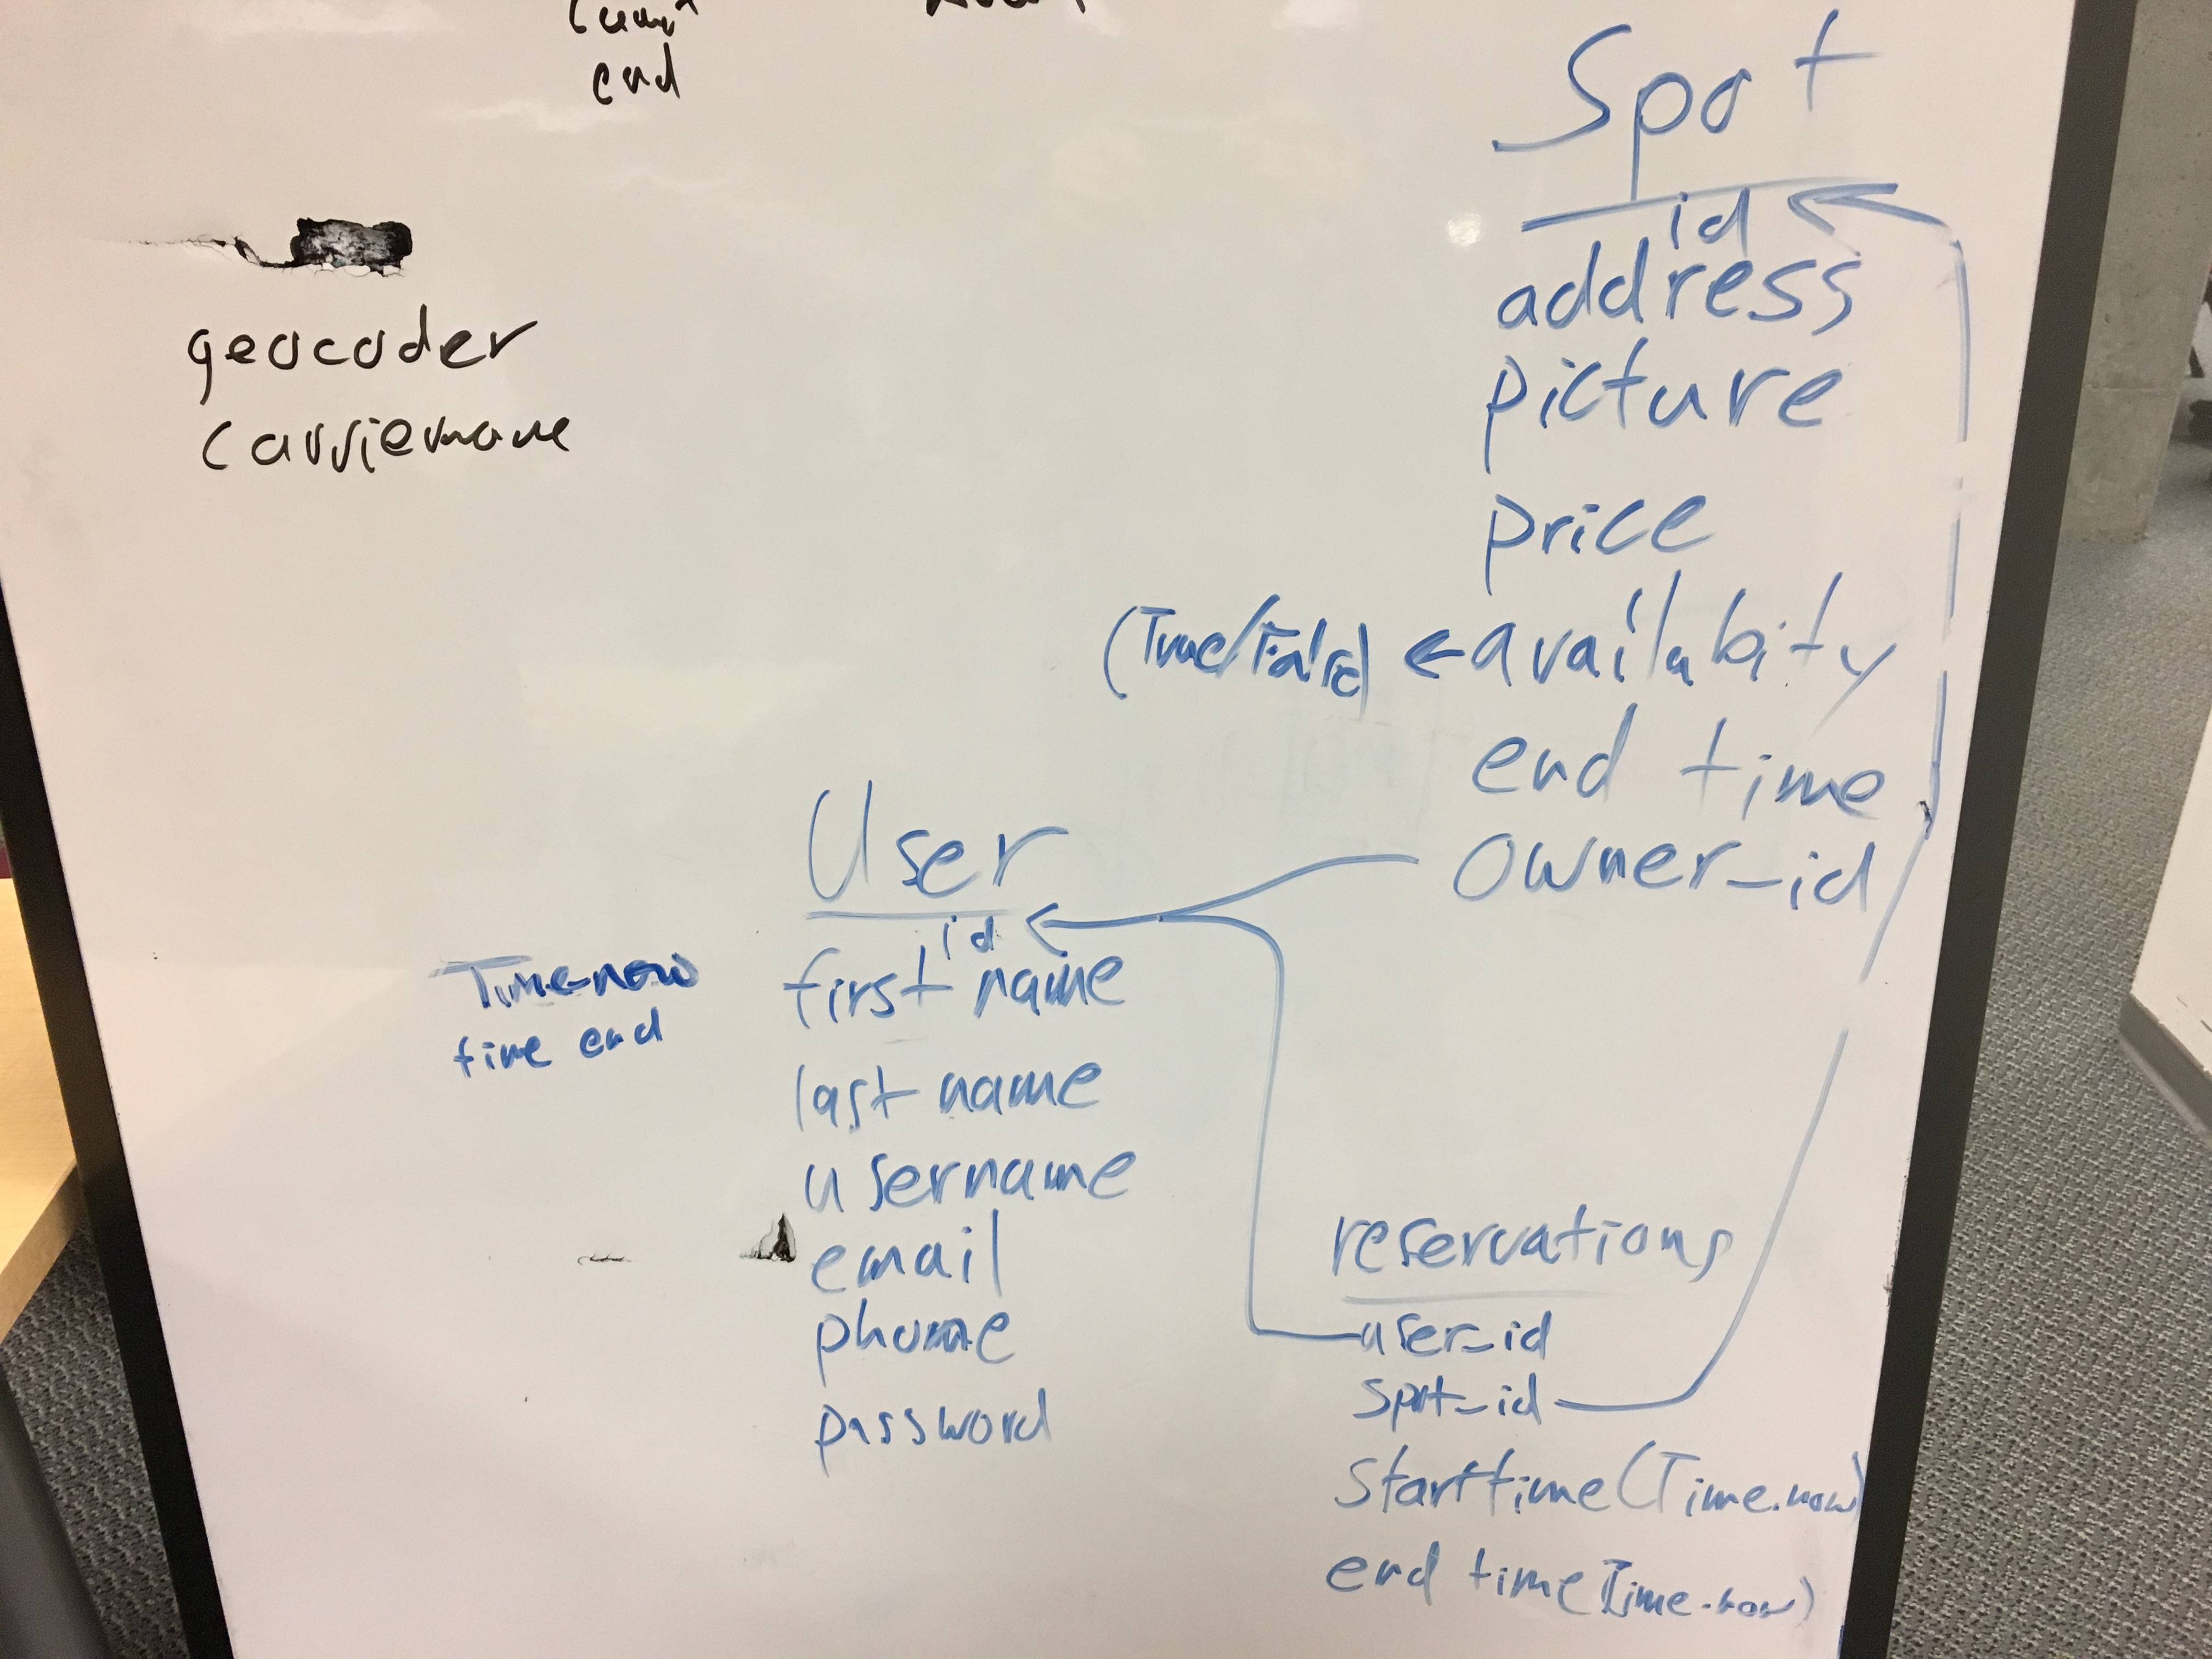 end
geocoder
carrierwave
Spot
id
address
picture
price
(True/False) ← availabity
end time
owner_id
User
id
first name
last name
username
email
phone
password
Time.now
time end
reservations
user_id
spot_id
start time (Time.now)
end time (Time.now)